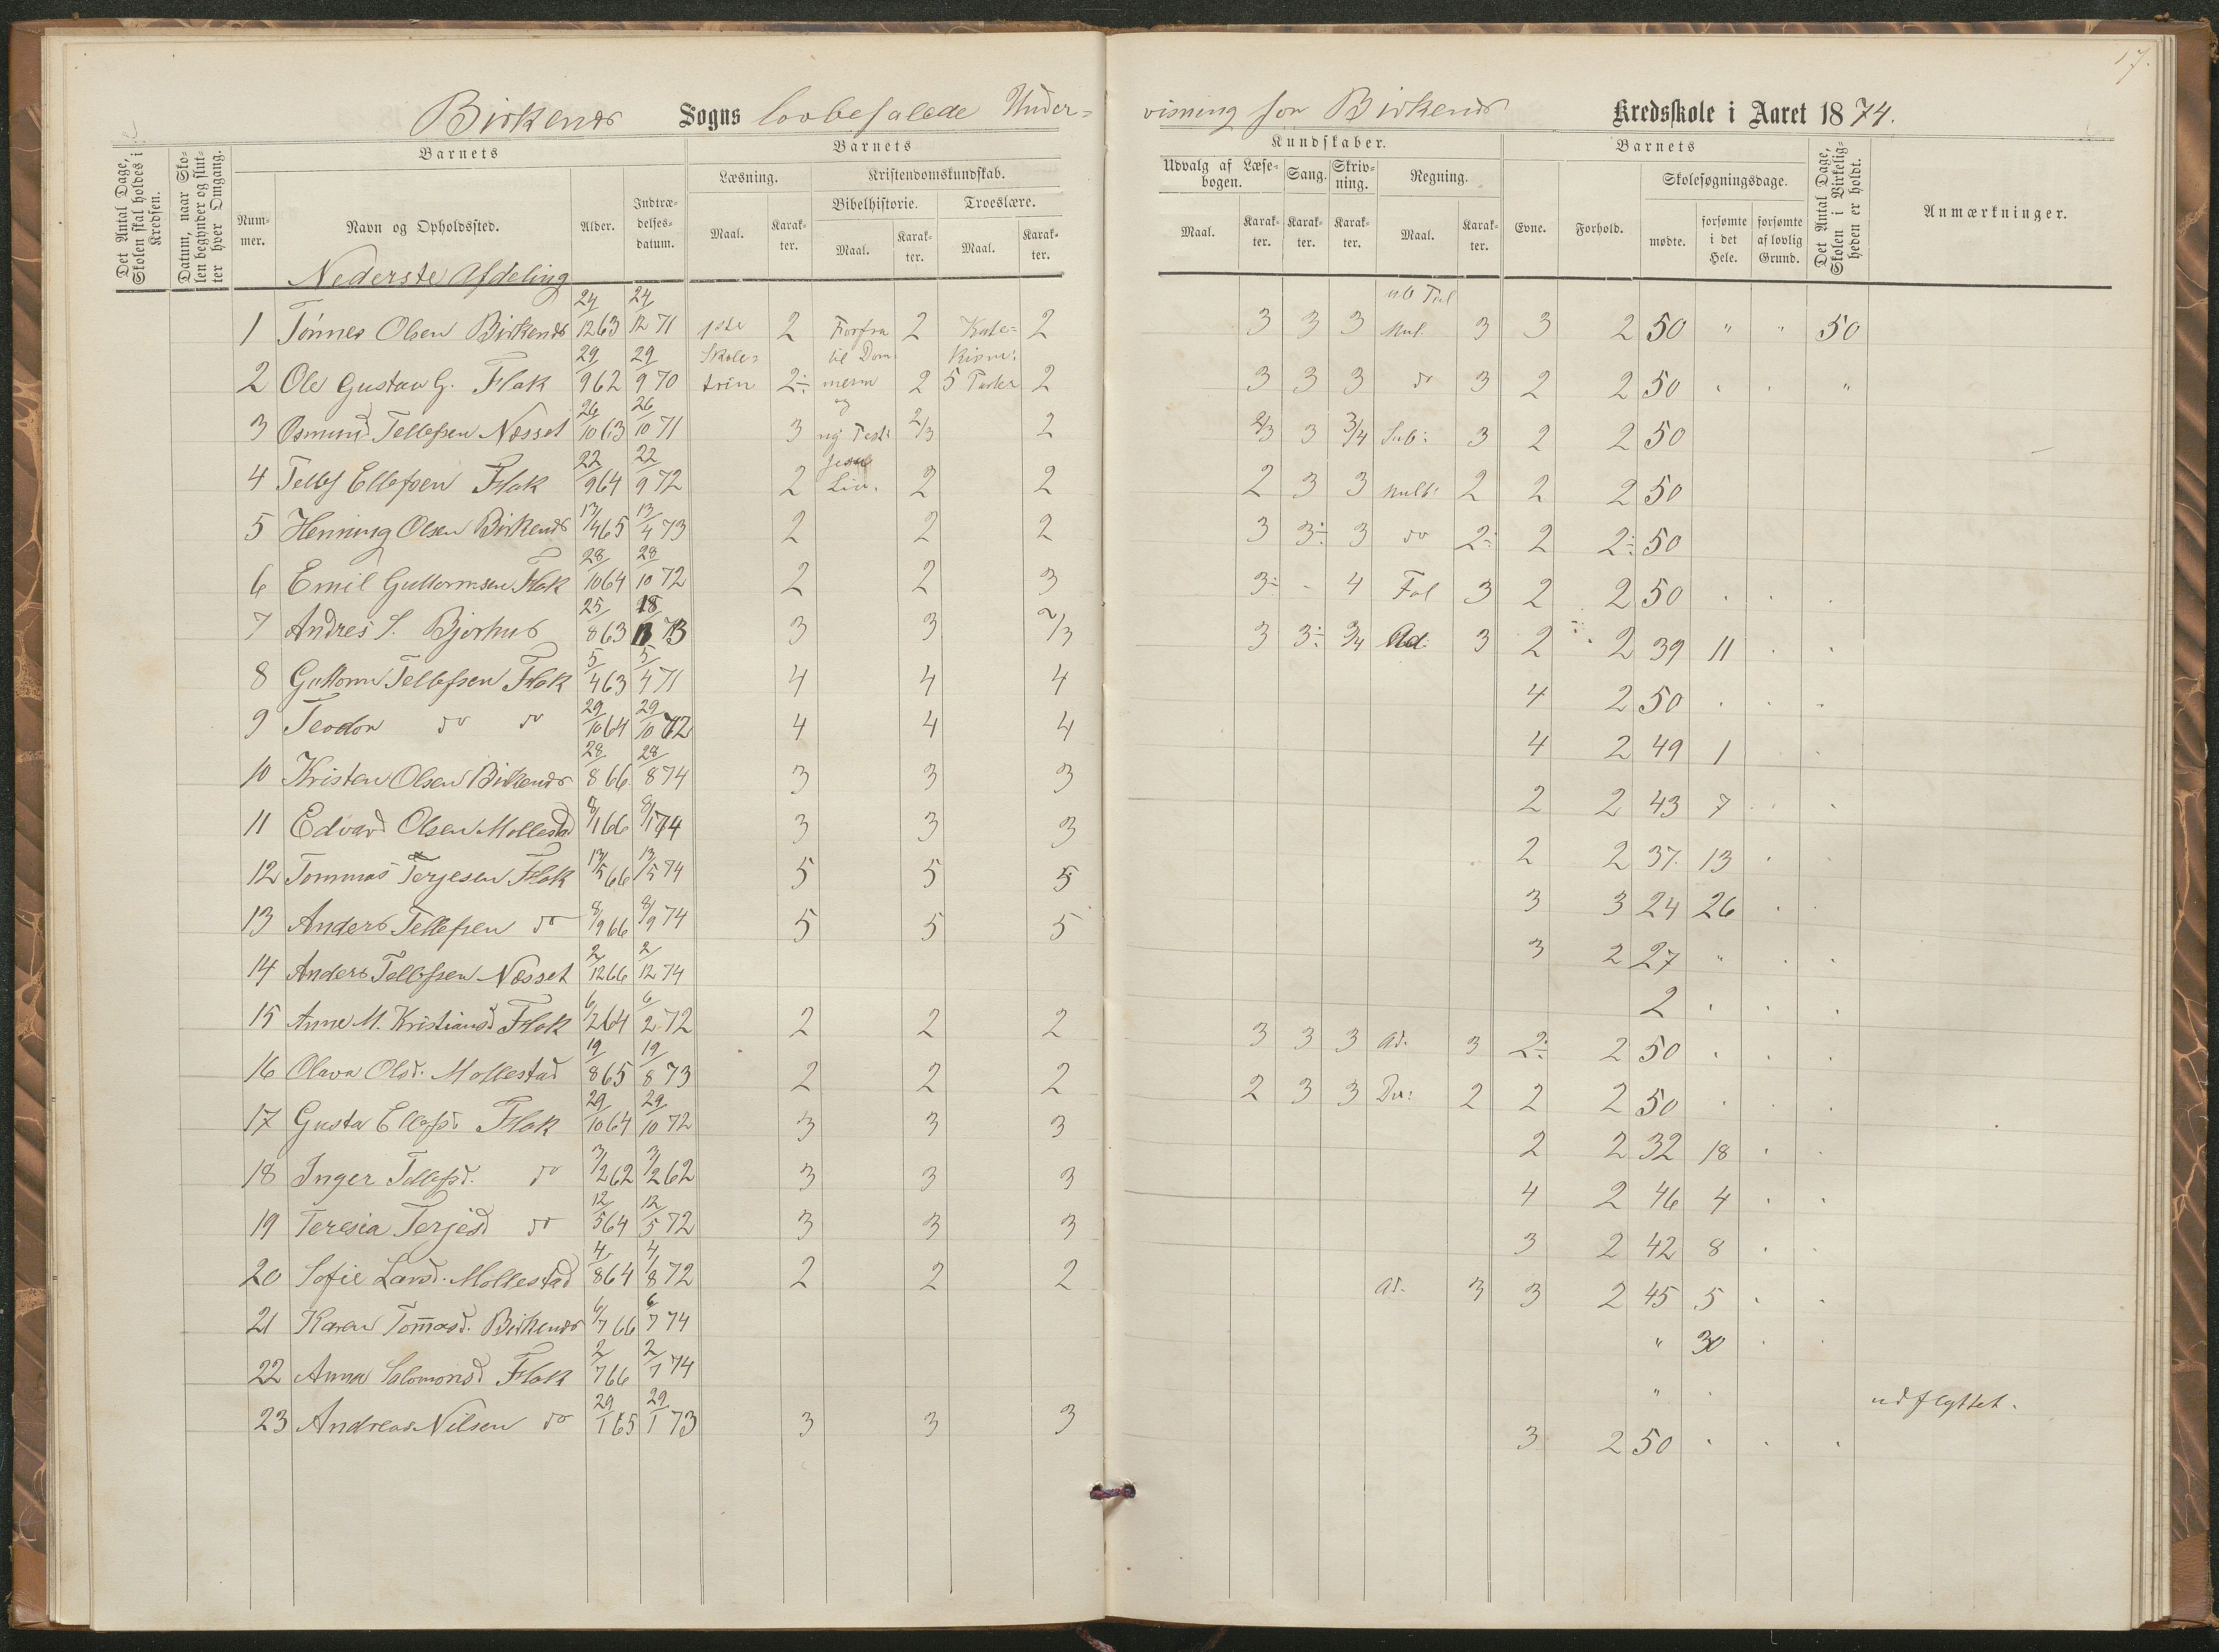 17.
Birkenes Sogns lovbefalede Under-
visning for Birkenes Kredsskole i Aaret 1874.
Det Antal Dage, Skolen skal holdes i Kredsen.
Datum, naar Skolen begynder og slutter hver Omgang.
Barnets
Barnets
Kundskaber.
Barnets
Det Antal Dage, Skolen i Virkeligheden er holdt.
Anmærkninger.
Nummer. Navn og Opholdssted. Alder. Indtrædelsesdatum.
Læsning. Kristendomskundskab.
Bibelhistorie. Troeslære.
Maal. Karakter. Maal. Karakter. Maal. Karakter.
Udvalg af Læsebogen. Sang. Skrivning. Regning.
Maal. Karakter. Karakter. Karakter. Maal. Karakter.
Evne. Forhold. Skolesøgningsdage.
mødte. forsømte i det Hele. forsømte af lovlig Grund.
Nederste Afdeling
1 Tønnes Olsen Birkenes 24/12 63 24/12 71 1ste 2 Forfra 2 Kate= 2 3 3 3 Mul. 3 3 2 50 " " 50
2 Ole Gustav G. Flak 29/9 62 29/9 70 Skole= trin 2÷ til Dom mern 2 kism: 5 Parter 2 3 3 3 do 3 2 2 50 . . "
3 Osmund Tellefsen Næsset 26/10 63 26/10 71 3 og ny Test: 2/3 2 2/3 3 3/4 Sub: 3 2 2 50
4 Tellef Ellefsen Flak 22/9 64 22/9 72 2 Jesu Liv. 2 2 2 3 3 Mult: 2 2 2 50
5 Henning Olsen Birkenes 13/4 65 13/4 73 2 2 2 3 3÷ 3 do 2÷ 2 2÷ 50
6 Emil Guttormsen Flak 28/10 64 28/10 72 2 2 3 3÷ - 4 3 2 2 50 . . .
7 Andreś S. Bjorhus 25/8 63 3 3 2/3 3 3÷ 3/4 Ad: 3 2 2 39 11 . .
8 Guttorm Tellefsen Flak 5/4 63 5/4 71 4 4 4 4 2 50 . . .
9 Teodor do do 29/10 64 29/10 72 4 4 4 4 2 49 1 .
10 Kristen Olsen Birkenes 28/8 66 28/8 74 3 3 3 2 2 43 7 . .
11 Edvard Olsen Mollestad 8/1 66 8/1 74 3 3 3 2 2 37. 13 .
12 Tommas Terjesen Flak 13/5 66 13/5 74 5 5 5 3 3 24 26 .
13 Anders Tellefsen do 8/9 66 8/9 74 5 5 5 3 2 27 " . .
14 Anders Tellefsen Næsset 2/12 66 2/12 74 2 . . .
15 Anne M. Kristiansd Flak 6/2 64 6/2 72 2 2 2 3 3 3 Ad. 3 2÷ 2 50 . . .
16 Olava Olsd. Mollestad 19/8 65 19/8 73 2 2 2 2 3 3 2 2 2 50 . . .
17 Gusta Ellefsd. Flak 29/10 64 29/10 72 3 3 3 2 2 32 18 . .
18 Inger Tellefsd. do 3/2 62 3/2 62 3 3 3 4 2 46 4 . .
19 Teresia Terjesd do 12/5 64 12/5 72 3 3 3 3 2 42 8 . .
20 Sofie Larsd. Mollestad 4/8 64 4/8 72 2 2 2 Ad. 3 3 2 45 5 . .
21 Karen Tom̄asd. Birkenes 6/7 66 6/7 74 " 30 . .
22 Anna Salomonsd Flak 2/7 66 2/7 74 " . udflyttet.
23 Andreas Nilsen do 29/1 65 29/1 73 3 3 3 3 2 50 . . .